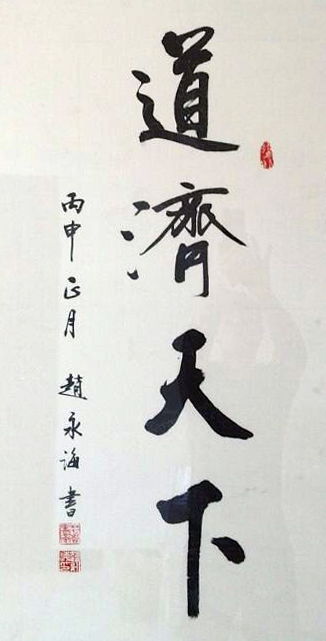 道濟天下
丙申正月 趙永海書